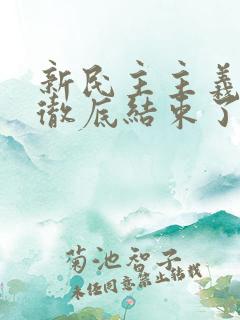 新民主主義
徹底結束了
菊池智子
未經同意禁止轉載